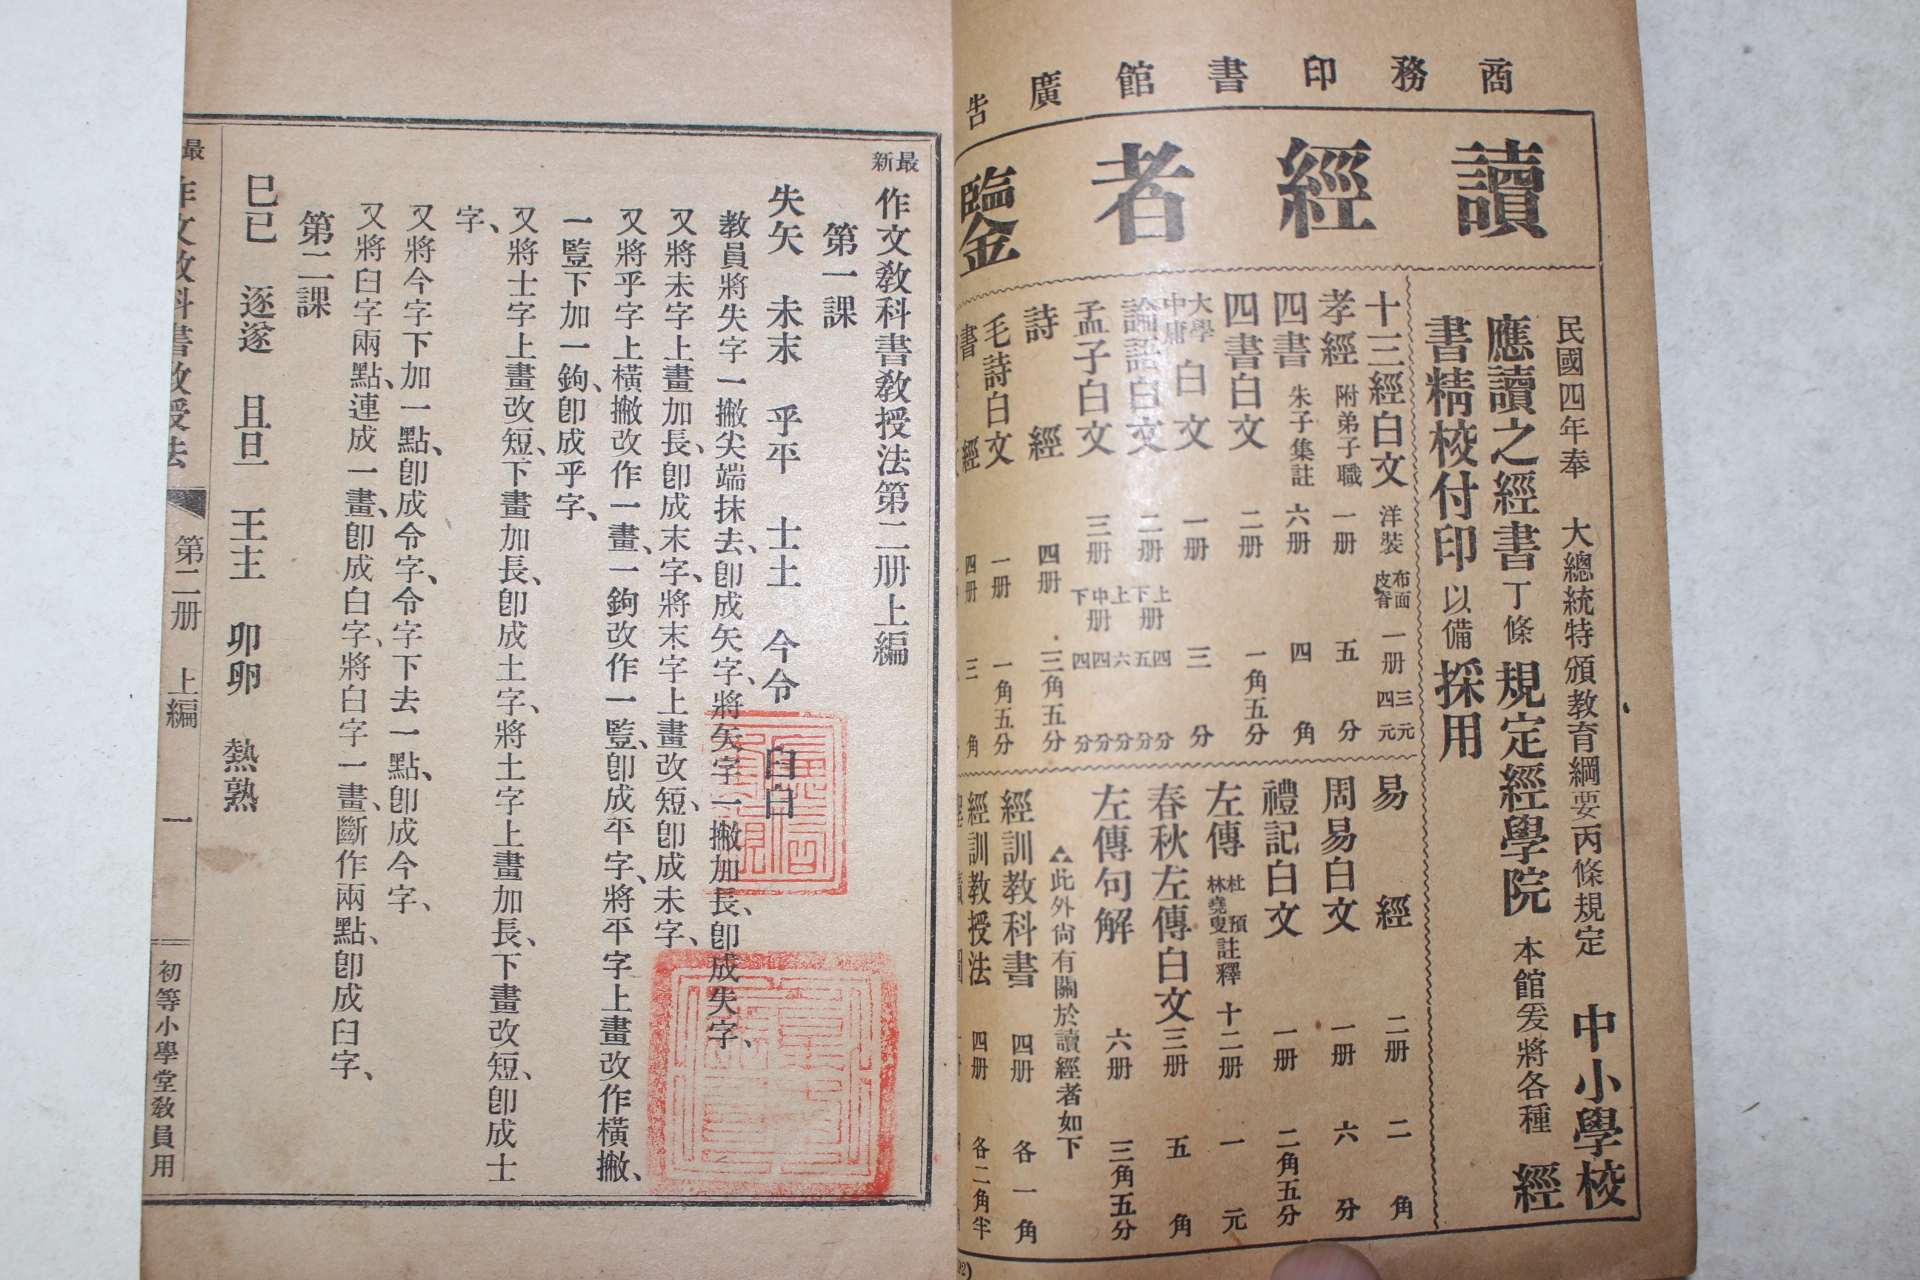 商務印書館廣告
讀經者鑒
民國四年奉　大總統特頒教育綱要丙條規定　中小學校
應讀之經書丁條規定經學院本館爰將各種經
書精校付印以備採用
十三經白文 洋裝 布面 皮脊 一册 三元 四元
孝經 附弟子職 一册 五分
四書 朱子集註 六册 四角
四書白文 二册 一角五分
大學中庸白文 一册 三分
論語白文 二册 上册 下册 四分 五分
孟子白文 三册 上 中 下册 六分 四分 四分
詩經 四册 三角五分
毛詩白文 一册 一角五分
書經 四册 三角
易經 二册 二角
周易白文 一册 六分
禮記白文 一册 二角五分
左傳 杜預 林堯叟 註釋 十二册 一元
春秋左傳白文 三册 五角
左傳句解 六册 三角五分
此外尙有關於讀經者如下
經訓教科書 四册 各一角
經訓教授法 四册 各二角半
最新作文教科書教授法第二册上編
第一課
失矢　未末　乎平　士土　今令　臼白
教員將失字一撇尖端抹去、卽成矢字、將矢字一撇加長、卽成失字、
又將未字上畫加長、卽成末字、將末字上畫改短、卽成未字、
又將乎字上橫撇改作一畫、一鉤改作一豎、卽成平字、將平字上畫改作橫撇、
一豎下加一鉤、卽成乎字、
又將士字上畫改短、下畫加長、卽成土字、將土字上畫加長、下畫改短、卽成士
字、
又將今字下加一點、卽成令字、令字下去一點、卽成今字、
又將臼字兩點、連成一畫、卽成白字、將白字一畫、斷作兩點、卽成臼字、
第二課
巳已　逐遂　且旦　王主　卯卵　熱熟
最　作文教科書教授法　第二册　上編　一　初等小學堂教員用